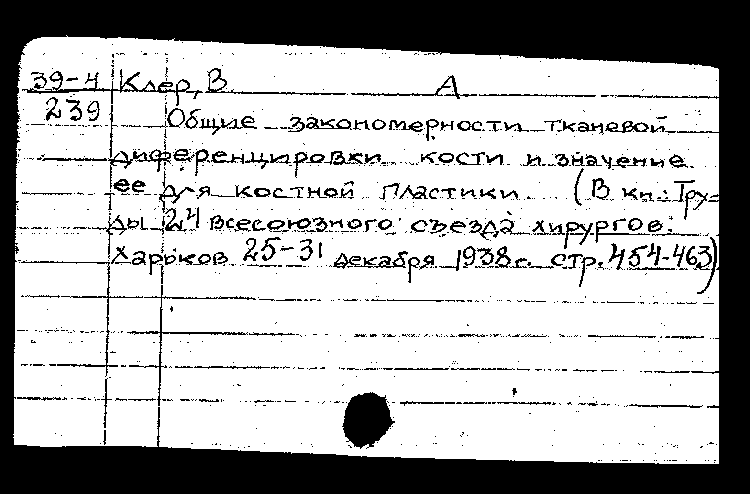 39-4 Клер, В. А.
239 Общие закономерности тканевой
диференцировки кости и значение
ее для костной пластики. (В кн.: Тру=
ды 24 всесоюзного съезда хирургов.
Харьков 25-31 декабря 1938г. стр. 454-463)